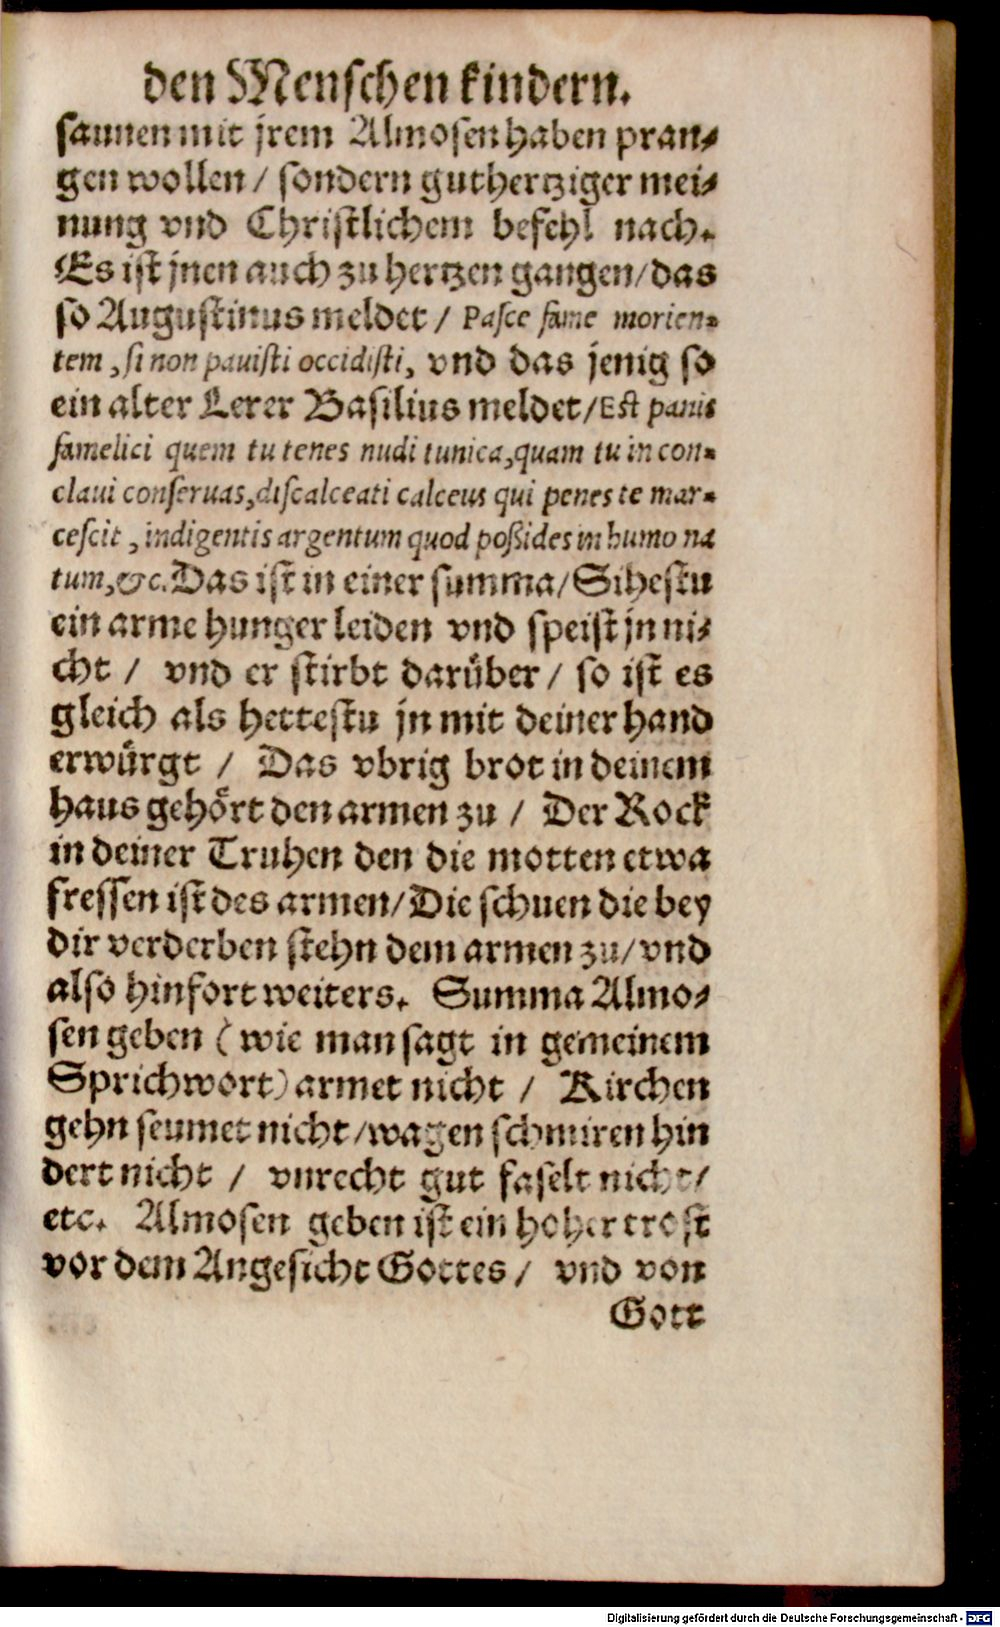 den Menſchen kindern.
ſaunen mit jrem Almoſen haben pran⸗
gen wollen / ſondern guthertziger mei⸗
nung vnd Chriſtlichem befehl nach.
Es iſt jnen auch zu hertzen gangen/das
ſo Auguſtinus meldet / Paſce fame morien-
tem , ſi non pauiſti occidiſti, vnd das jenig ſo
ein alter Lerer Baſilius meldet/Eſt panis
famelici quem tu tenes nudi tunica,quam tu in con-
claui conſeruas,diſcalceati calceus qui penes te mar-
ceſcit , indigentis argentum quod poßides in humo na
tum,&c. Das iſt in einer ſumma/Siheſtu
ein arme hunger leiden vnd ſpeiſt jn ni⸗
cht / vnd er ſtirbt darüber / ſo iſt es
gleich als hetteſtu jn mit deiner hand
erwürgt / Das vbrig brot in deinem
haus gehört den armen zu / Der Rock
in deiner Truhen den die motten etwa
freſſen iſt des armen/Die ſchuen die bey
dir verderben ſtehn dem armen zu/vnd
alſo hinfort weiters. Summa Almo⸗
ſen geben (wie man ſagt in gemeinem
Sprichwort) armet nicht / Kirchen
gehn ſeumet nicht/wagen ſchmiren hin
dert nicht / vnrecht gut faſelt nicht/
etc. Almoſen geben iſt ein hoher troſt
vor dem Angeſicht Gottes / vnd von
Gott
Digitalisierung gefördert durch die Deutsche Forschungsgemeinschaft - DFG